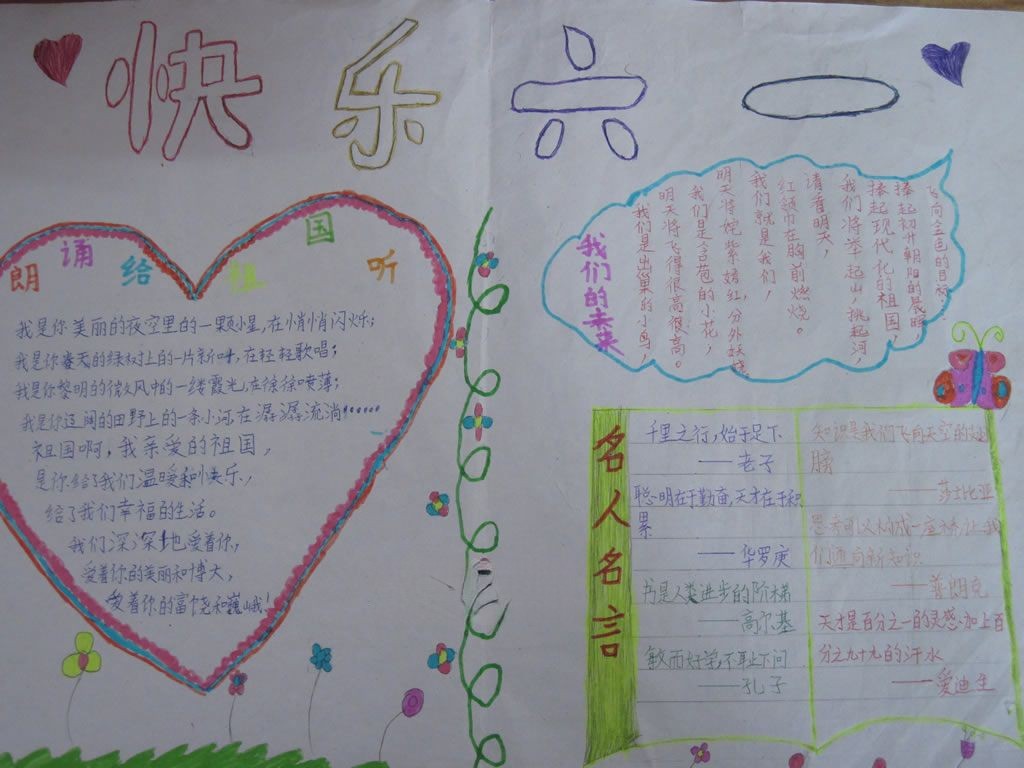 快乐六一
朗诵给祖国听
我是你美丽的夜空里的一颗小星,在悄悄闪烁;
我是你春天的绿树上的一片新叶,在轻轻歌唱;
我是你黎明的微风中的一缕霞光,在徐徐喷薄;
我是你辽阔的田野上的一条小河,在潺潺流淌!……
祖国啊,我亲爱的祖国,
是你给了我们温暖和快乐,
给了我们幸福的生活。
我们深深地爱着你,
爱着你的美丽和博大,
爱着你的富饶和巍峨!
我们的未来
我们是出巢的小鸟,
明天将飞得很高很高。
我们是含苞的小花,
明天将姹紫嫣红,分外妖娆
我们就是我们,
红领巾在胸前燃烧。
请看明天,
我们将举起山,挑起河,
捧起现代化的祖国,
捧起初升朝阳的晨曦
飞向金色的目标
名人名言
千里之行,始于足下
——老子
聪明在于勤奋,天才在于积
累
——华罗庚
书是人类进步的阶梯
——高尔基
敏而好学,不耻下问
——孔子
知识是我们飞向天空的翅
膀
——莎士比亚
思考可以构成一座桥,让我
们通向新知识
——普朗克
天才是百分之一的灵感,加上百
分之九十九的汗水
——爱迪生